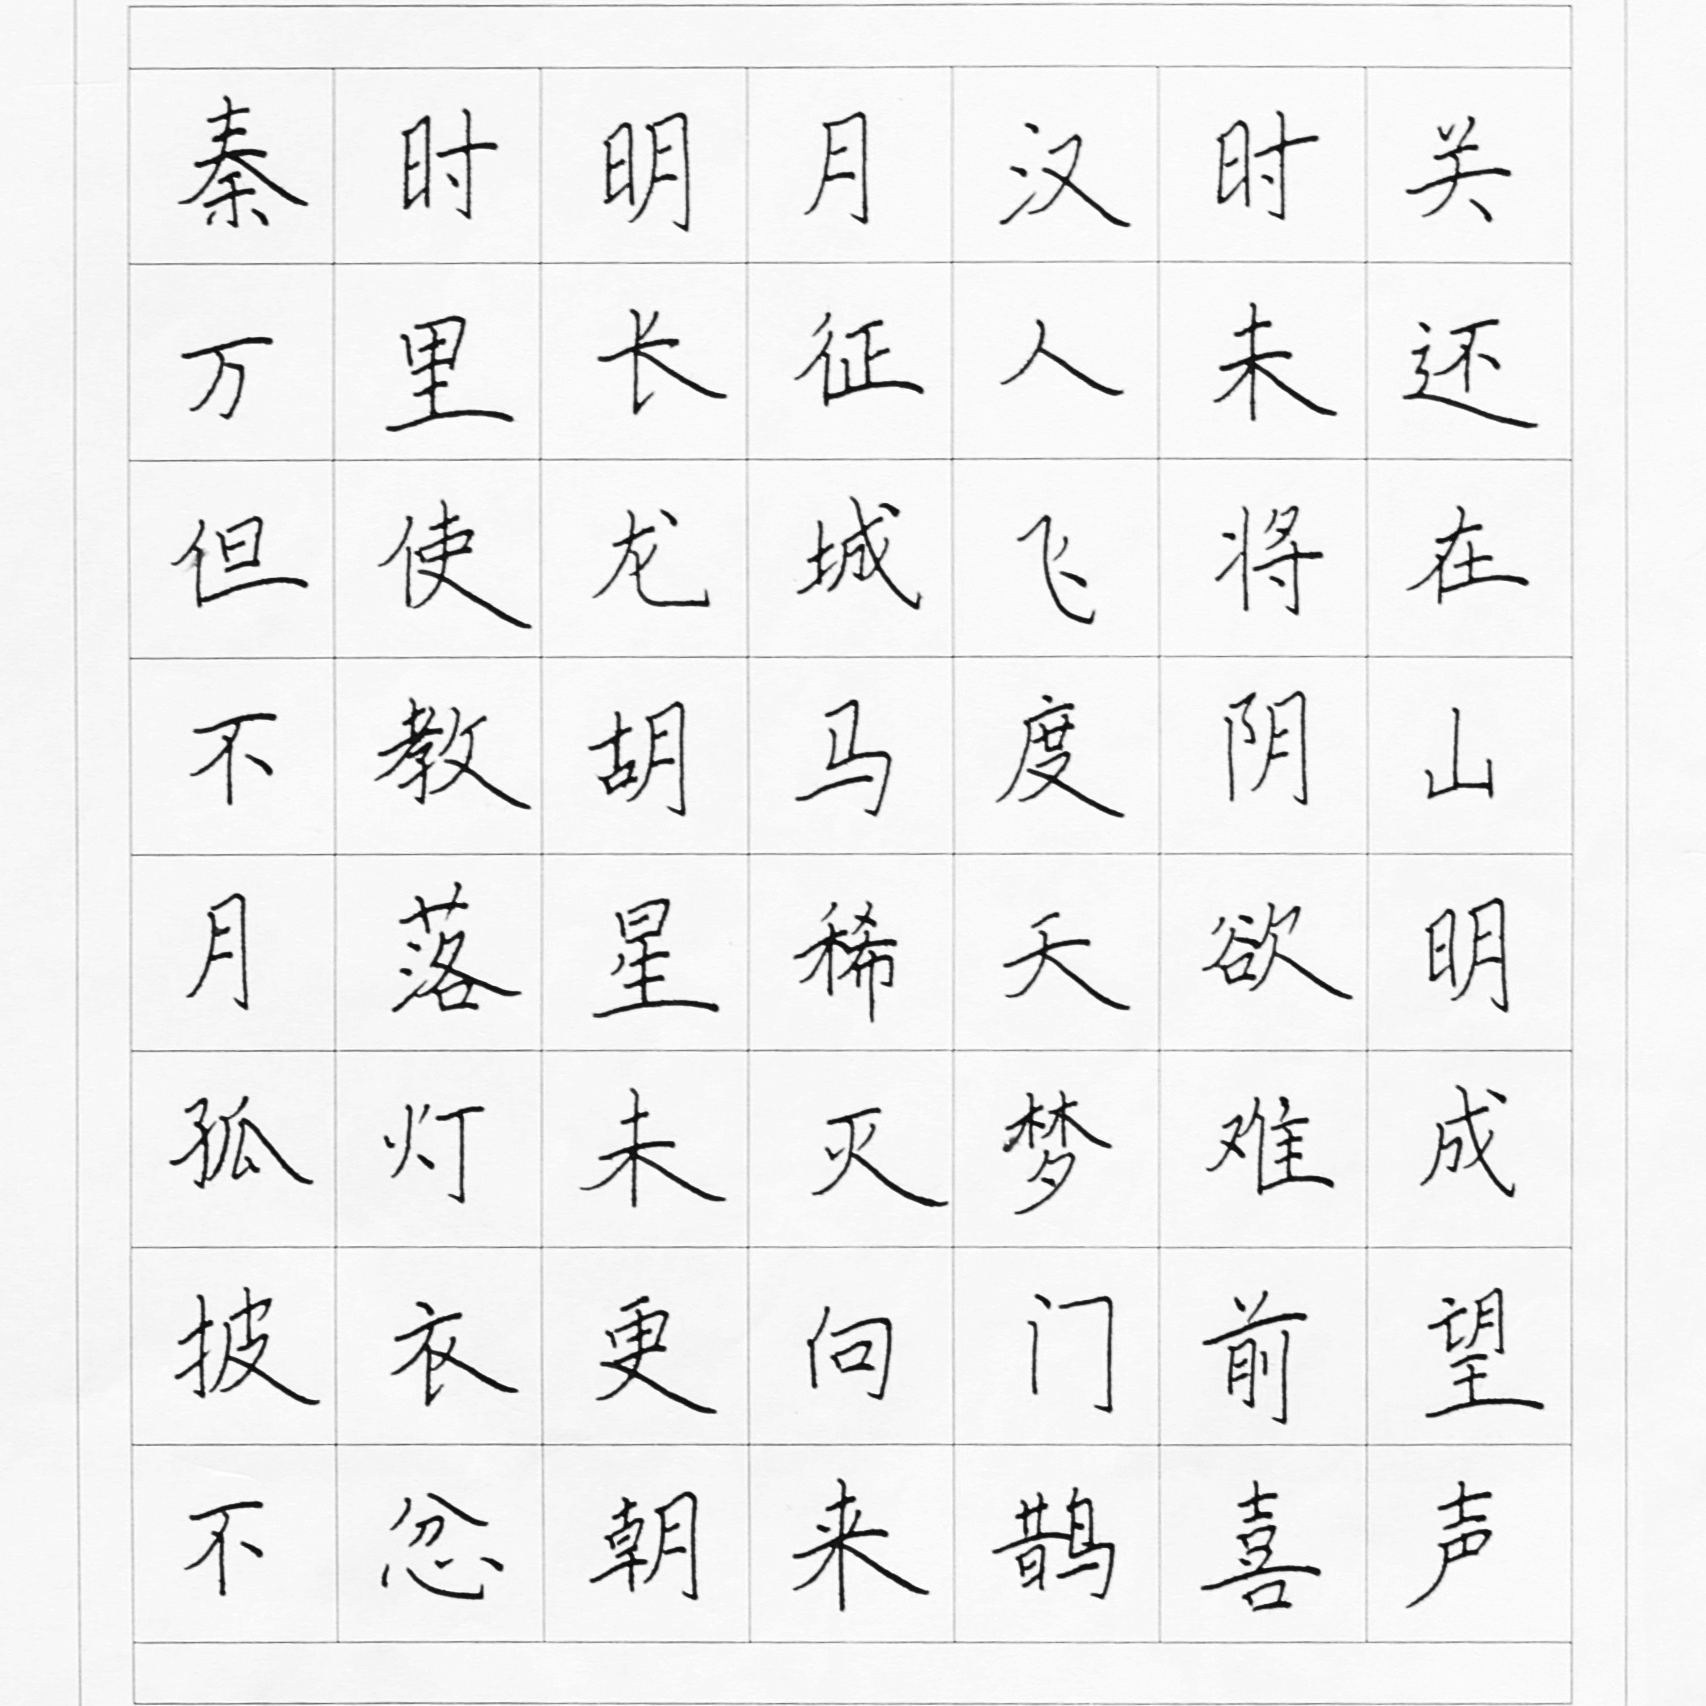 秦时明月汉时关
万里长征人未还
但使龙城飞将在
不教胡马度阴山
月落星稀天欲明
孤灯未灭梦难成
披衣更向门前望
不忿朝来鹊喜声